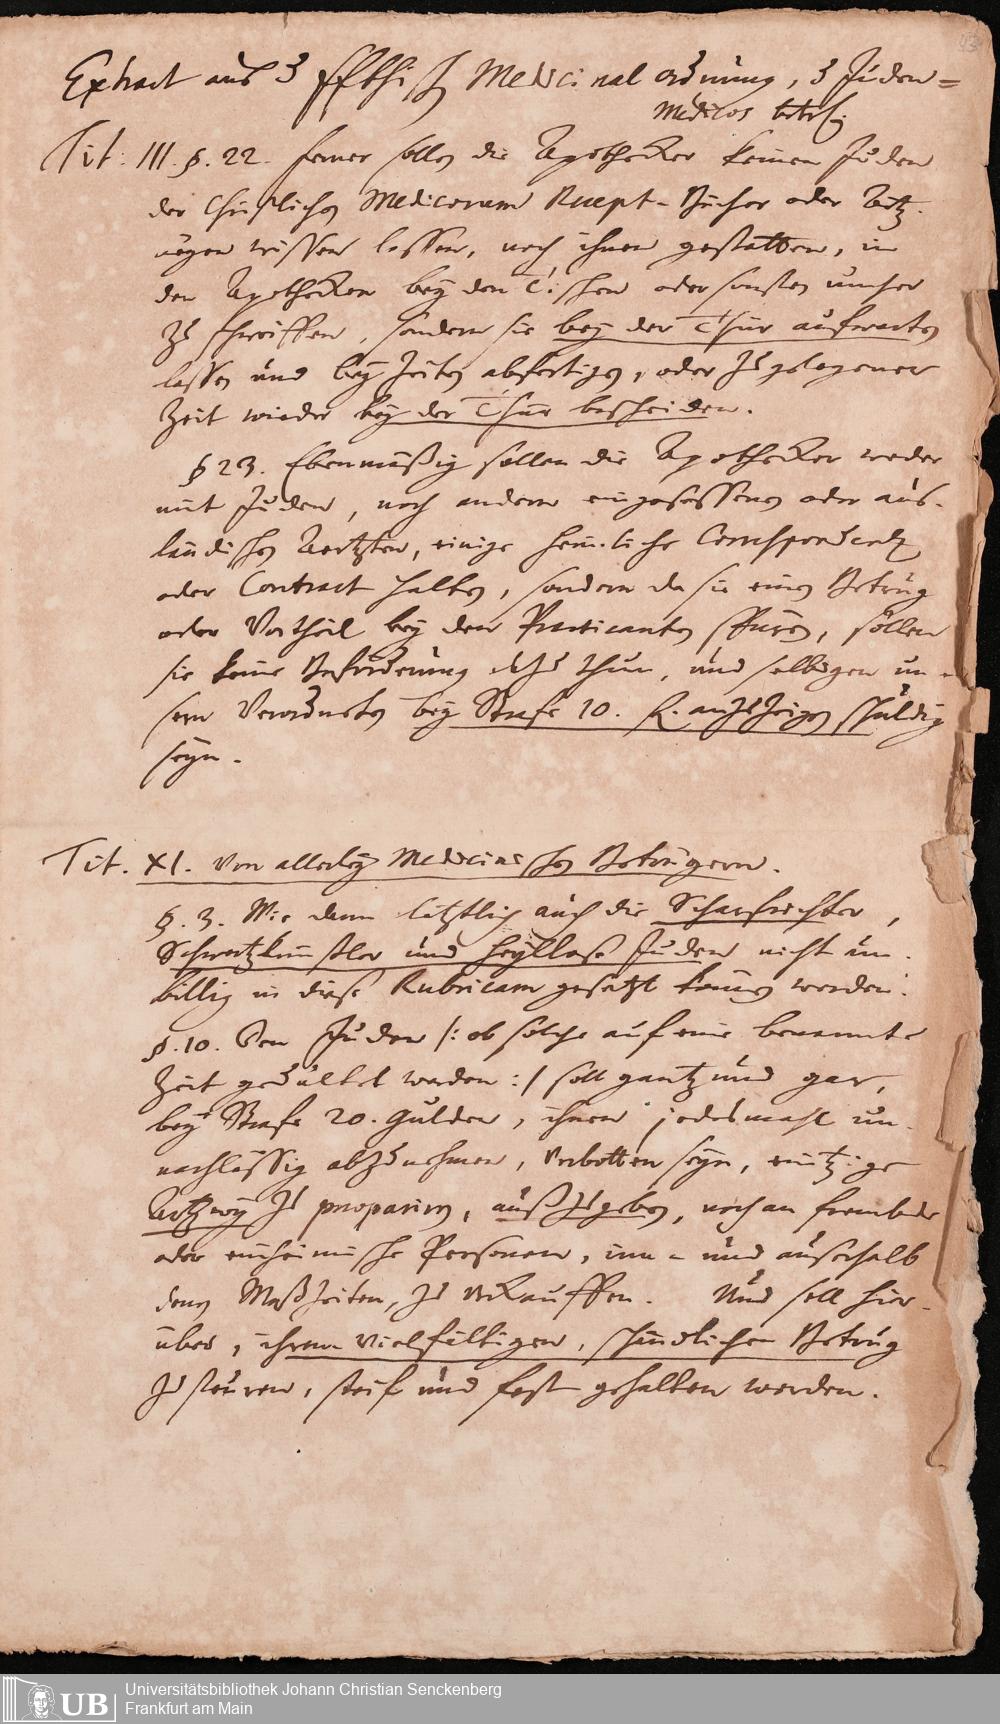 Extract aus d. Medicinal ordnung, d. Juden=
Medicos betrf.
Tit: III. §. 22. ferner sollen die Apothecker keinen Juden
der Christlichen Medicorum Recept-Bücher oder Artz-
neyen wissen lassen, noch ihnen gestatten, in
den Apothecken bey den Tischen oder sonsten umher
zu schweiffen, sondern sie bey der Thür aufwarten
lassen und bey Zeiten abfertigen, oder zu gelegener
Zeit wieder bey der Thür bescheiden.
§ 23. Ebenmäßig sollen die Apothecker weder
mit Juden, noch andern eingesessenen oder aus-
ländischen Aertzten, einige heimliche Correspondentz
oder Contract halten, sondern da sie einen Betrug
oder Vortheil bey den Practicanten spüren, sollen
sie keine Beförderung dazu thun, und selbigen un-
sern Verordneten bey Strafe 10. fl. anzuzeigen schuldig
seyn.
Tit. XI. Von allerley Medicinischen Betrügern.
§. 3. Wie dann letztlich auch die Scharfrichter,
Schwartzkünstler und heyllose Juden nicht un-
billig in diese Rubricam gesetzt können werden.
§. 10. Den Juden /: ob solche auf eine benannte
Zeit gedultet werden :/ soll gantz und gar,
bey Strafe 20. Gulden, ihnen jedesmahl un-
nachlässig abzunehmen, verbotten seyn, eintzige
Artzney zu praepariren, auszugeben, noch an frembde
oder einheimische Personen, inn- und auserhalb
denen Meßzeiten, zu verkauffen. Und soll hier-
über, ihrem vielfältigen, schändlichen Betrug
zu steuren, steif und fest gehalten werden.
UB
Universitätsbibliothek Johann Christian Senckenberg
Frankfurt am Main